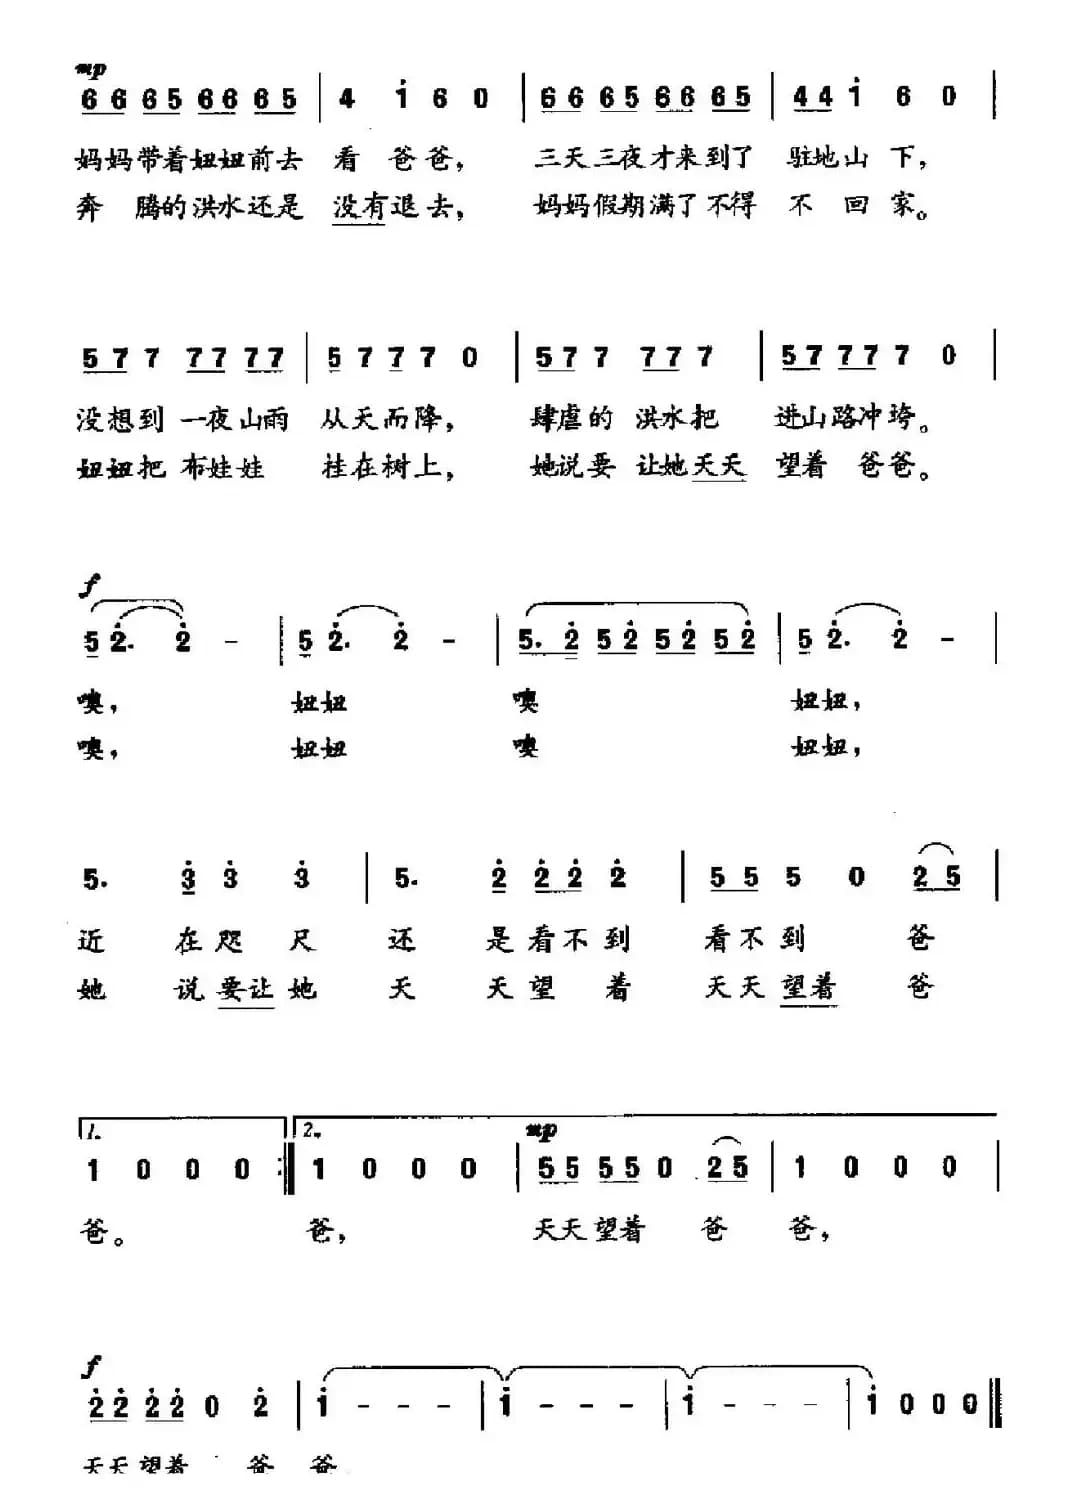 mp
6 6 6 5 6 6 6 5 | 4 i 6 0 | 6 6 6 5 6 6 6 5 | 4 4 i 6 0 |
妈妈带着妞妞前去 看 爸爸， 三天三夜才来到了 驻地山 下，
奔 腾的洪水还是 没有退去， 妈妈假期满了不得 不 回 家。
5 7 7 7 7 7 7 | 5 7 7 7 0 | 5 7 7 7 7 7 | 5 7 7 7 7 0 |
没想到 一夜山雨 从天而降， 肆虐的 洪水把 进山路冲垮。
妞妞把 布娃娃 挂在树上， 她说要 让她天天 望着 爸爸。
f
5 2. 2 - | 5 2. 2 - | 5. 2 5 2 5 2 5 2 | 5 2. 2 - |
噢， 妞妞 噢 妞妞，
噢， 妞妞 噢 妞妞，
5. 3 3 3 | 5. 2 2 2 2 | 5 5 5 0 2 5 |
近 在咫 尺 还 是看不到 看不到 爸
她 说要让她 天 天望 着 天天望着 爸
1. 2. mp
1 0 0 0 :| 1 0 0 0 | 5 5 5 5 0 2 5 | 1 0 0 0 |
爸。 爸， 天天望着 爸 爸，
f
2 2 2 2 0 2 | i - - - | i - - - | i - - - | i 0 0 0 ‖
天天望着 爸 爸